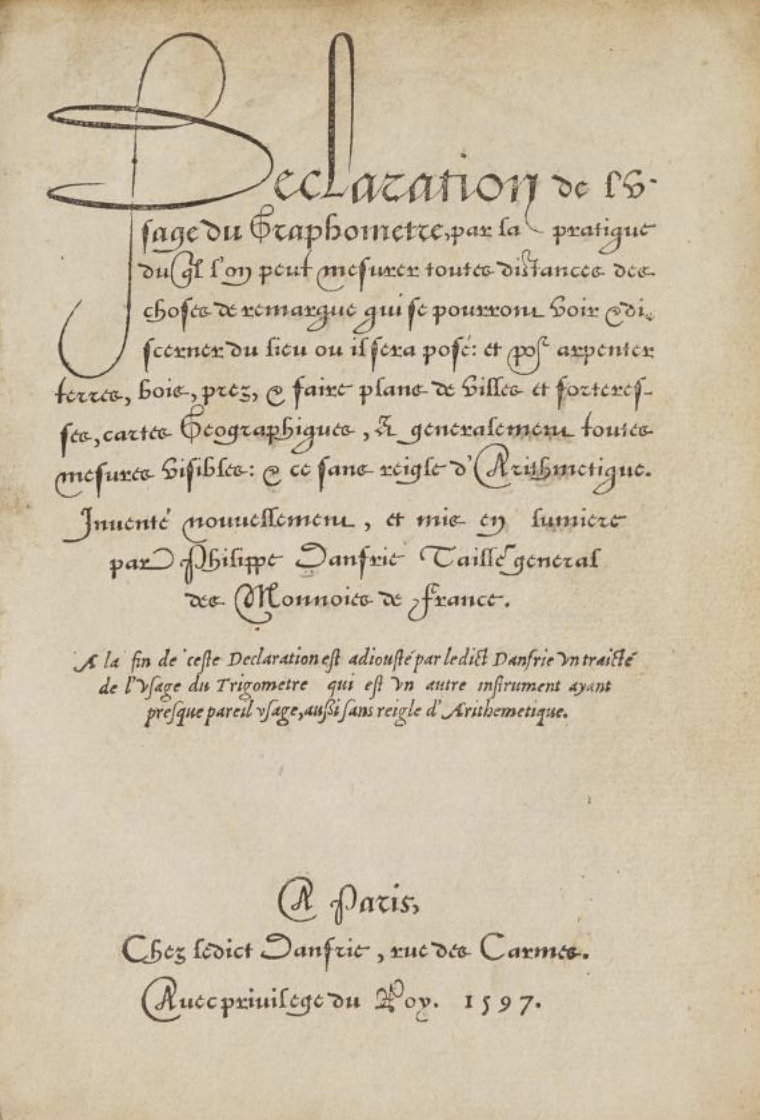 Declaration de l'v-
sage du Graphometre, par la pratique
du q̃l l'on peut mesurer toutes distances des
choses de remarque qui se pourront voir & di-
scerner du lieu ou il sera posé: et po᷒ arpenter
terres, bois, prez, & faire plans de villes et forteres-
ses, cartes Geographiques, & generalement toutes
mesures visibles: & ce sans reigle d'Arithmetique.
Inventé nouuellement, et mis en lumiere
par Philippe Danfrie Taillẽ general
des Monnoies de France.
A la fin de ceste Declaration est adiousté par ledict Danfrie vn traicté
de l'vsage du Trigometre qui est vn autre instrument ayant
presque pareil vsage, aussi sans reigle d'Arithemetique.
A Paris,
Chez ledict Danfrie, rue des Carmes.
Auec privilege du Roy. 1597.